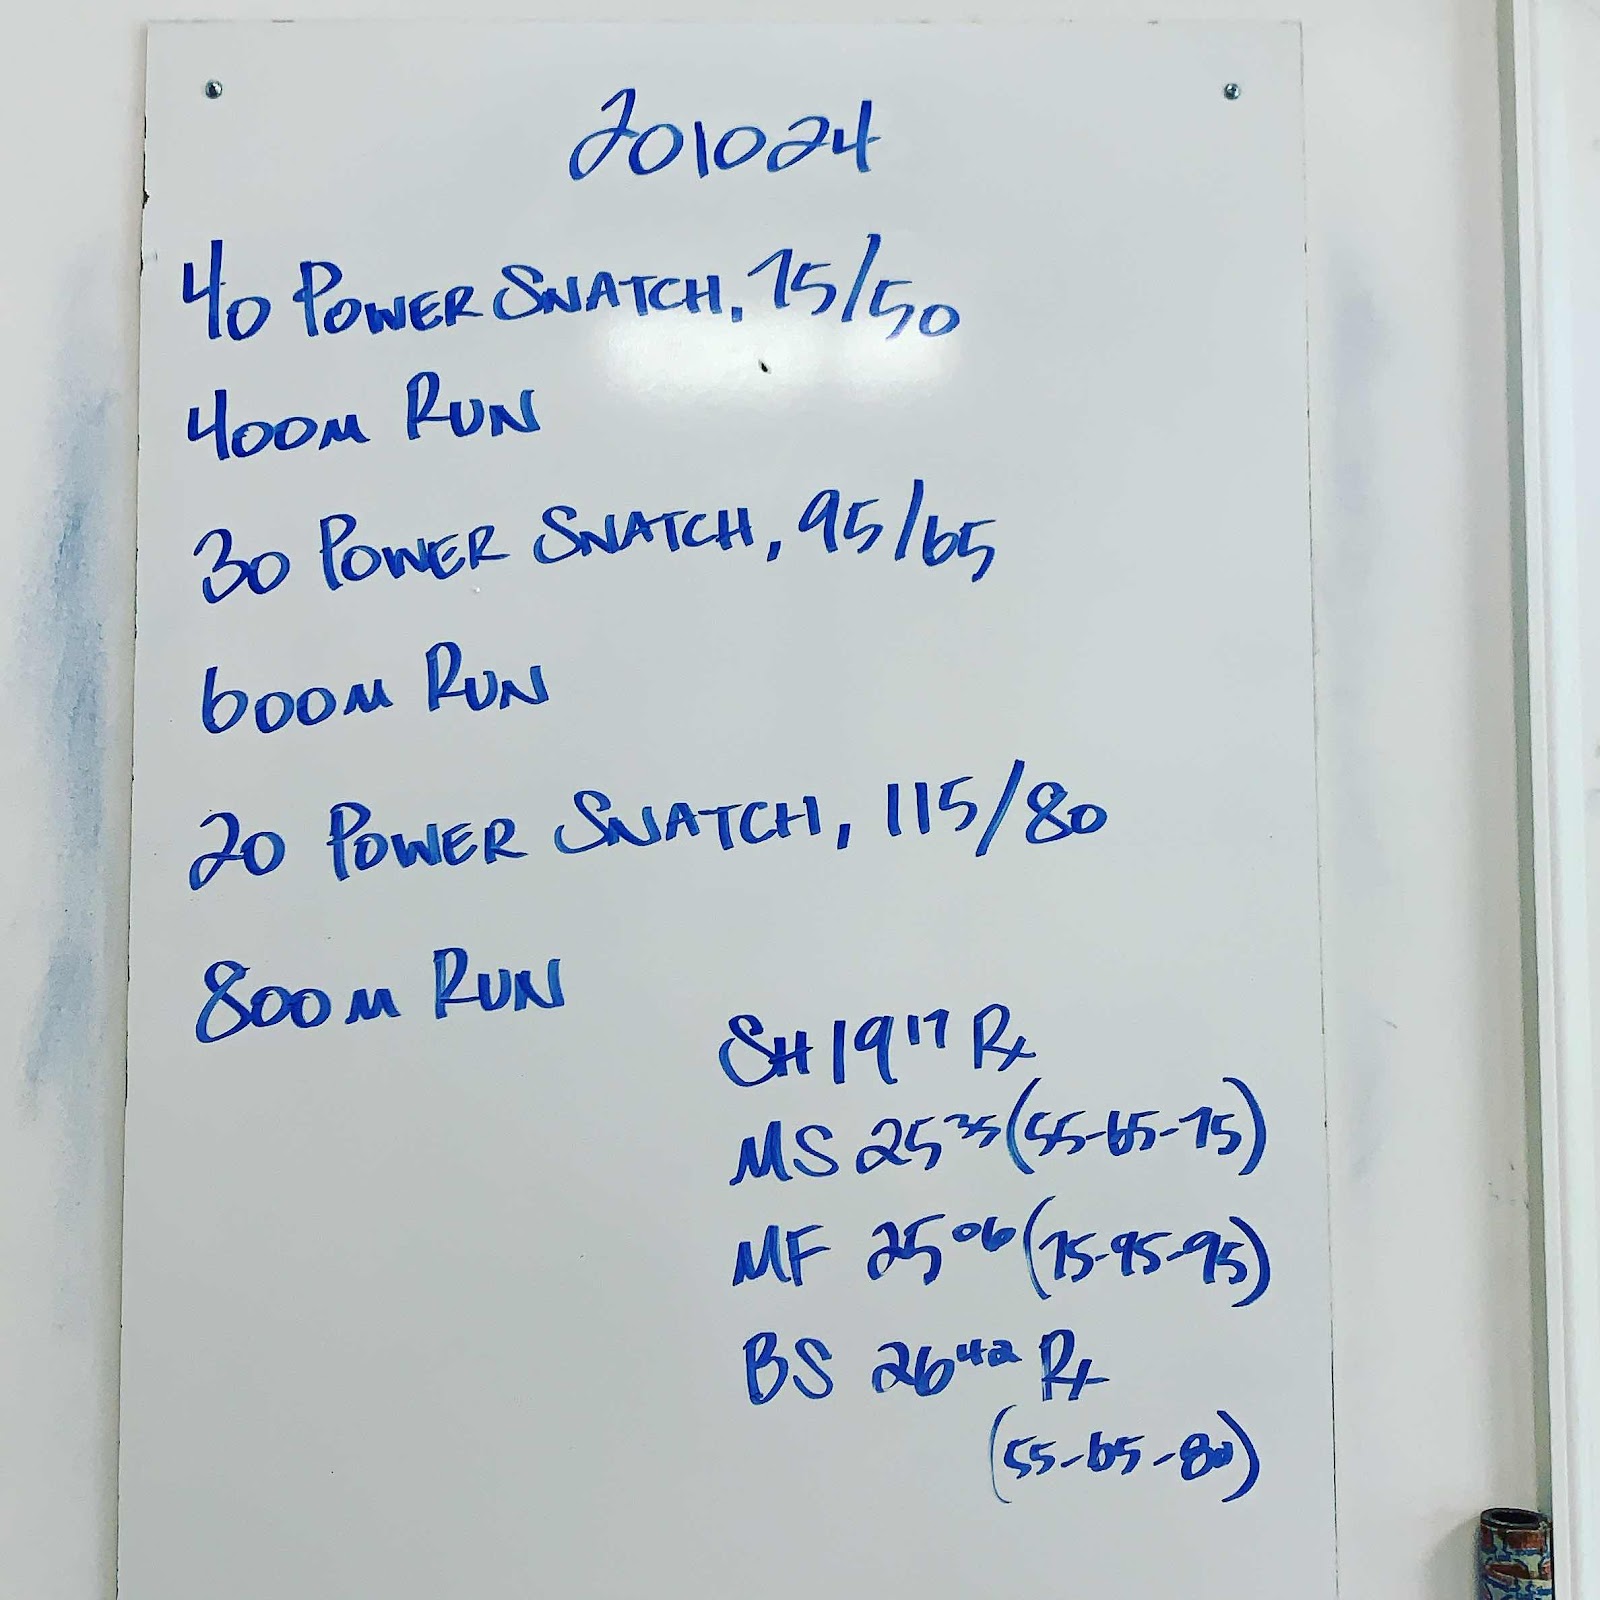 201024
40 POWER SNATCH, 75/50
400M RUN
30 POWER SNATCH, 95/65
600M RUN
20 POWER SNATCH, 115/80
800M RUN
SH 19 17 Rx
MS 25 35 (55-65-75)
MF 25 06 (75-95-95)
BS 26 42 Rx
(55-65-80)